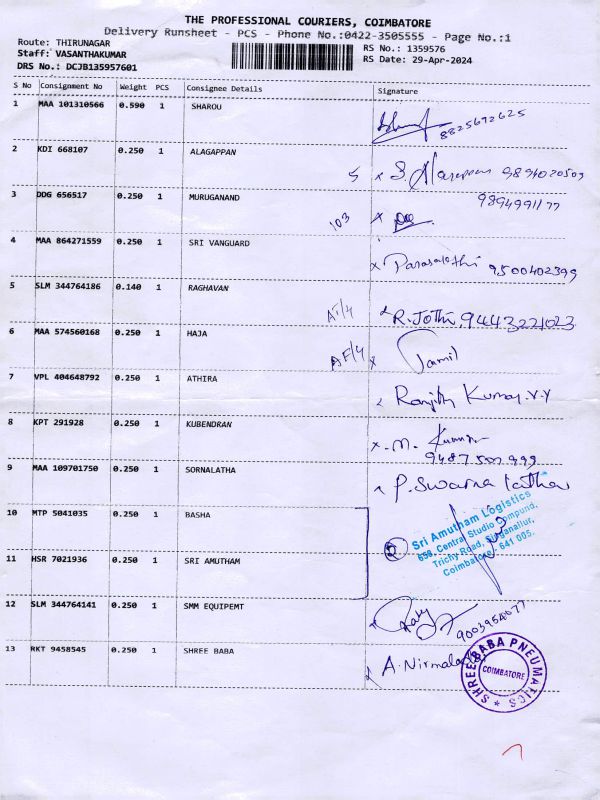 THE PROFESSIONAL COURIERS, COIMBATORE
Delivery Runsheet - PCS - Phone No.:0422-3505555 - Page No.:1
Route: THIRUNAGAR
Staff: VASANTHAKUMAR
DRS No.: DCJB135957601
RS No.: 1359576
RS Date: 29-Apr-2024
S No Consignment No Weight PCS Consignee Details Signature
1 MAA 101310566 0.590 1 SHAROU
8825672625
2 KDI 668107 0.250 1 ALAGAPPAN
5 x S. Alagappan 9894020509
3 DDG 656517 0.250 1 MURUGANAND
103 x 9894991177
4 MAA 864271559 0.250 1 SRI VANGUARD
x 9500402399
5 SLM 344764186 0.140 1 RAGHAVAN
AF/4 R. Jothi, 9443221023
6 MAA 574560168 0.250 1 HAJA
AF/4 x Tamil
7 VPL 404648792 0.250 1 ATHIRA
Ranjith Kumar. V.V
8 KPT 291928 0.250 1 KUBENDRAN
x . M.
9 MAA 109701750 0.250 1 SORNALATHA
P. Swarna latha
10 MTP 5041035 0.250 1 BASHA
11 HSR 7021936 0.250 1 SRI AMUTHAM
2 Sri Amutham Logistics
659, Central Studio Compund,
Trichy Road, Singanallur,
Coimbatore - 641 005.
12 SLM 344764141 0.250 1 SMM EQUIPEMT
x 9003954077
13 RKT 9458545 0.250 1 SHREE BABA
A. Nirmala
SHREE BABA PNEUMATICS
COIMBATORE